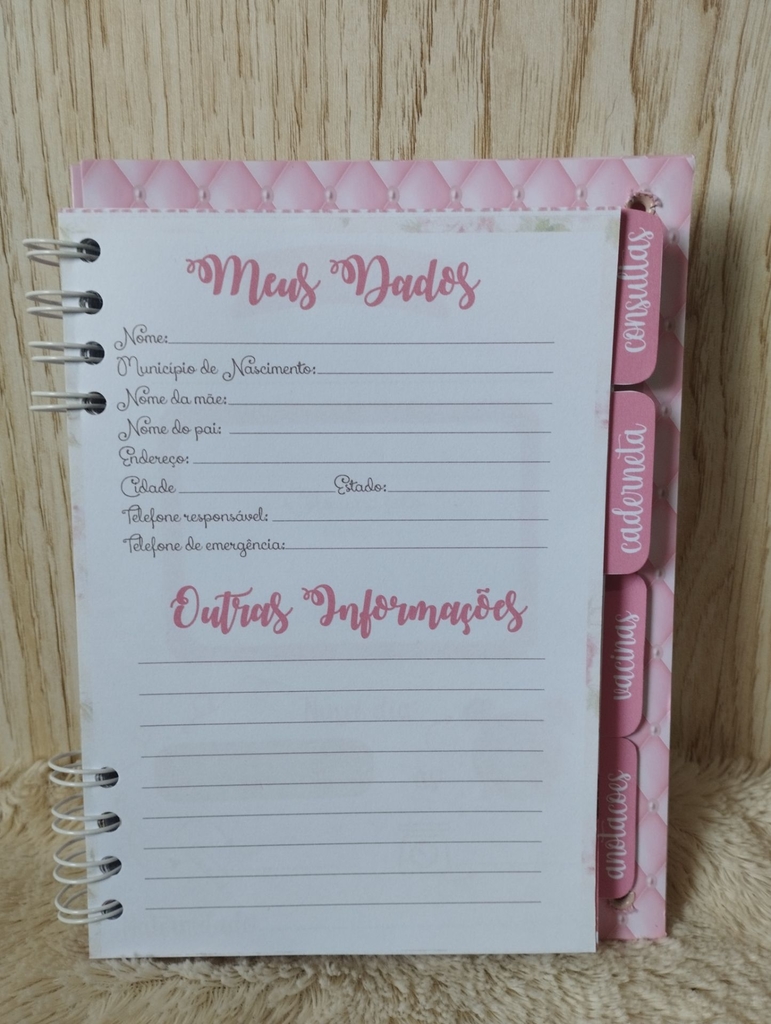 Meus Dados
Nome:
Município de Nascimento:
Nome da mãe:
Nome do pai:
Endereço:
Cidade Estado:
Telefone responsável:
Telefone de emergência:
Outras Informações
consultas
caderneta
vacinas
anotacoes